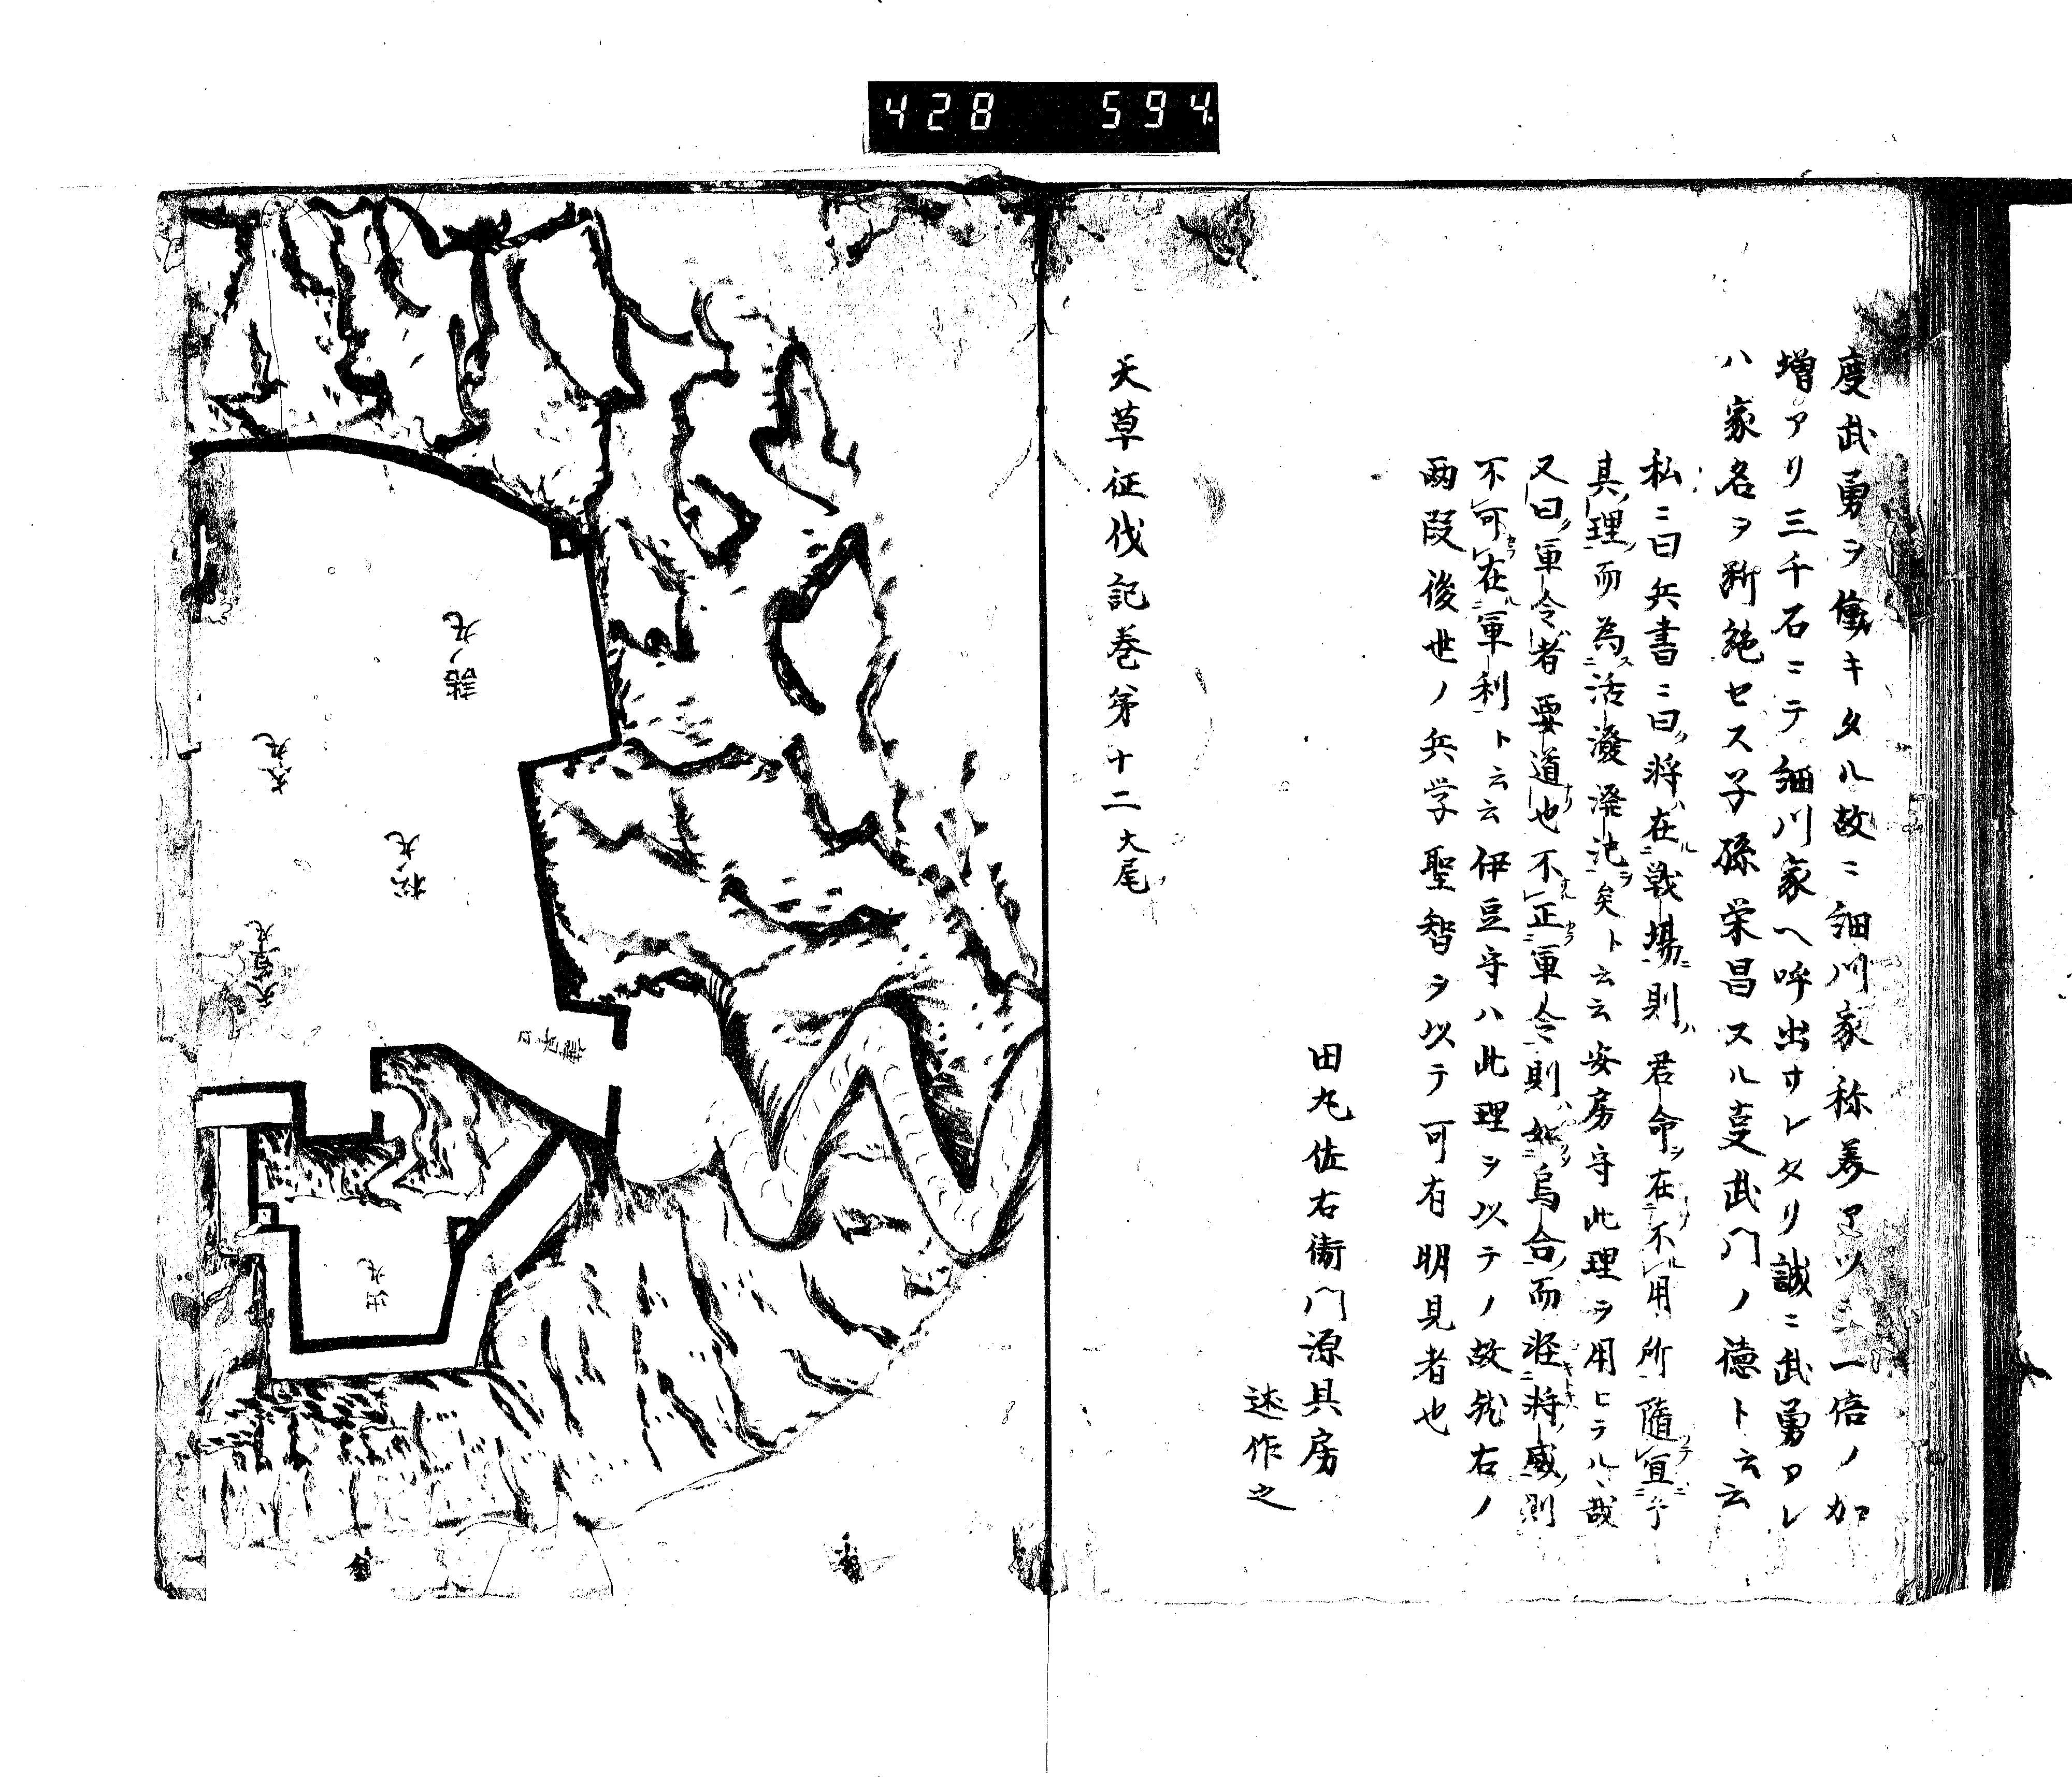 428 594
度武勇ヲ働キタル故ニ細川家称美アツテ一倍ノ加
増アリ三千石ニテ細川家ヘ呼出サレタリ誠ニ武勇アレ
ハ家名ヲ断絶セス子孫栄昌スル事武門ノ徳ト云云
私ニ曰兵書ニ曰将在戦場則君命在不用所随宜
其理而為活溌溌地矣ト云云安房守此理ヲ用ヒラル哉
又曰軍令者要道也不正軍令則如烏合而在将威則
不可在軍利ト云云伊豆守ハ此理ヲ以テノ故哉右ノ
両段後世ノ兵学聖智ヲ以テ可有明見者也
田丸佐右衛門源具房
述作之
天草征伐記巻第十二大尾
詰ノ丸
大丸
松丸
天草丸
出丸